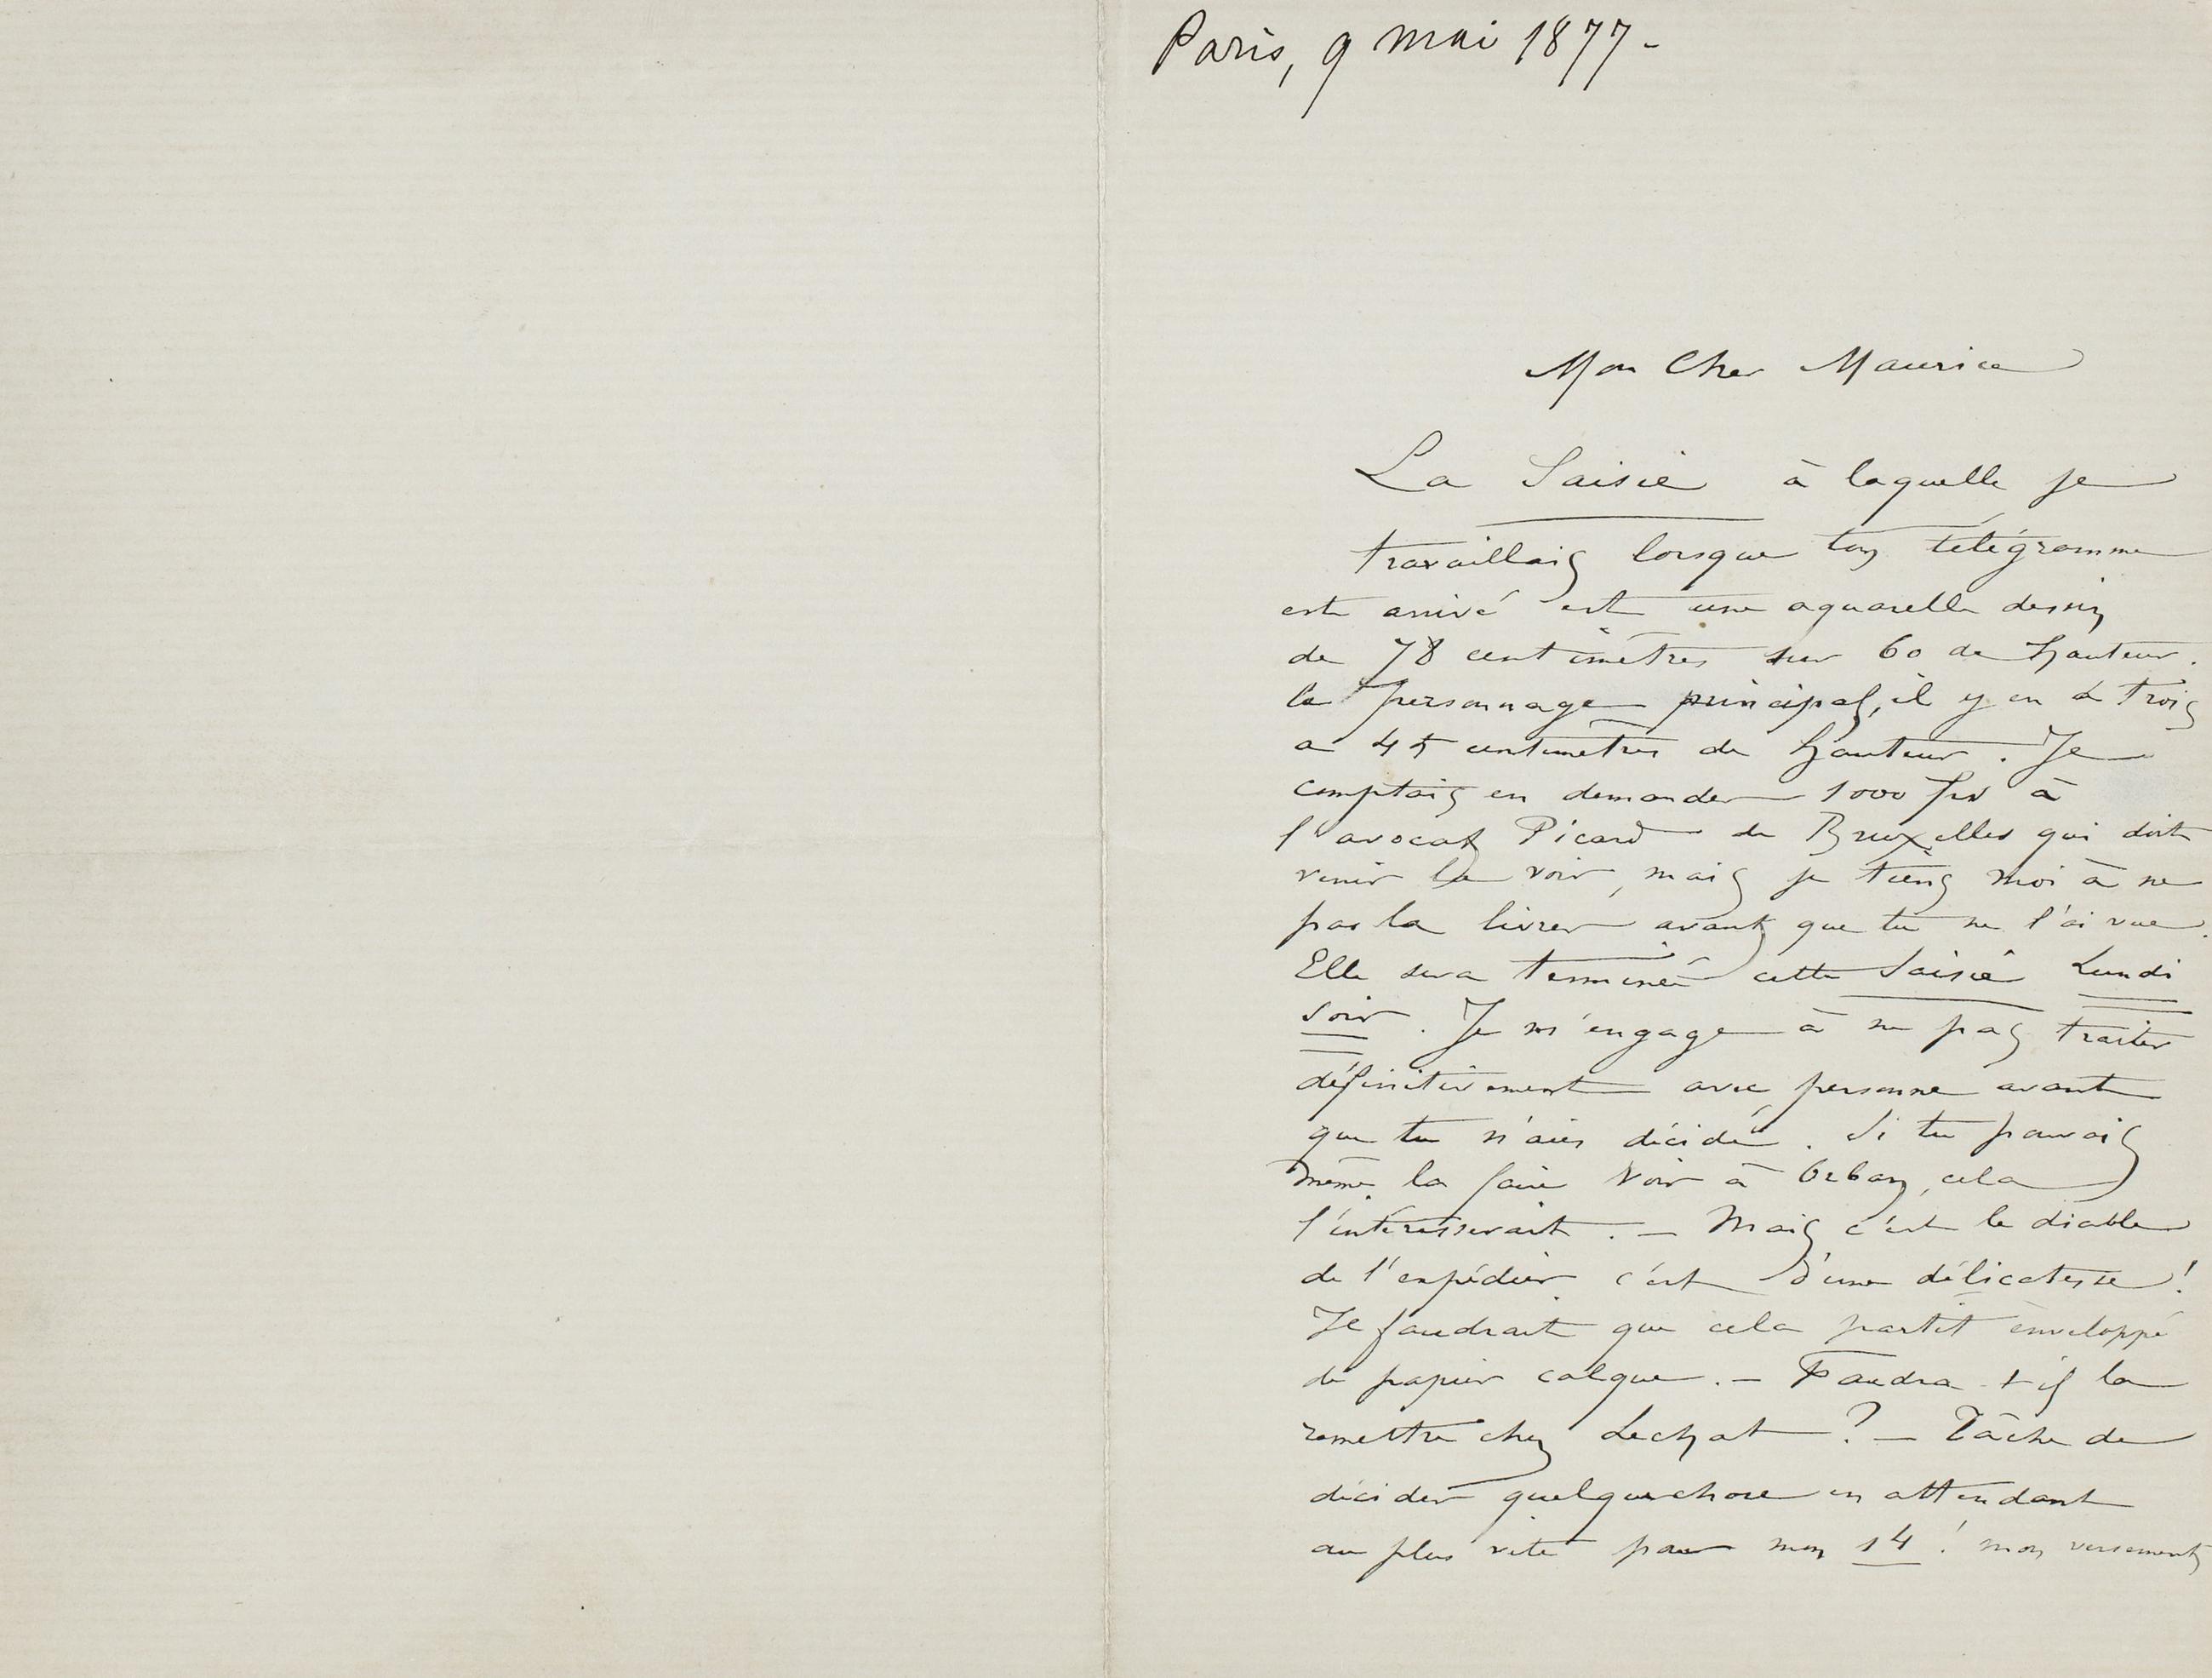 Paris, 9 mai 1877 -
Mon Cher Maurice
La Saisie à laquelle je
travaillais lorsque ton télégramme
est arrivé est une aquarelle dessin
de 78 centimètres sur 60 de hauteur.
le personnage principal, il y en a trois
a 45 centimètres de hauteur. Je
comptais en demander 1000 frs à
l'avocat Picard de Bruxelles qui doit
venir la voir, mais je tiens moi à ne
pas la livrer avant que tu ne l'ai vue.
Elle sera terminée cette Saisie Lundi
soir. Je m'engage à ne pas traiter
définitivement avec personne avant
que tu n'aies décidé. Si tu pouvais
même la faire voir à Orban, cela
l'intéresserait. — Mais c'est le diable
de l'expédier c'est d'une délicatesse !
Il faudrait que cela partit enveloppé
de papier calque. — Faudra-t-il la
remettre chez Lechat ? — Tâche de
décider quelquechose en attendant
au plus vite pour mon 14 ! mon versement